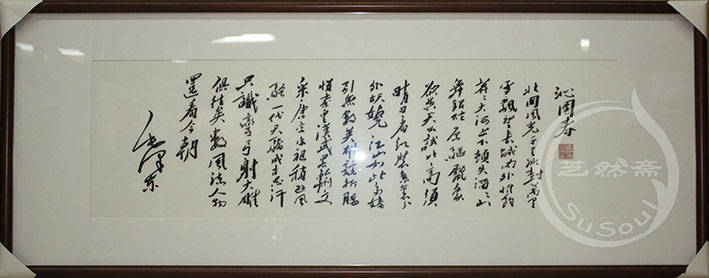 沁园春
北国风光千里冰封万里
雪飘望长城内外惟馀
莽々大河上下顿失滔々山
舞银蛇原驱腊象
欲与天公试比高须
晴日看红装素裹分
外妖娆江山如此多娇
引无数英雄竞折腰
惜秦皇汉武略输文
采唐宗宋祖稍逊风
骚一代天骄成吉思汗
只識彎弓射大雕
俱往矣數風流人物
還看今朝
毛泽东
然斋
SuSoul